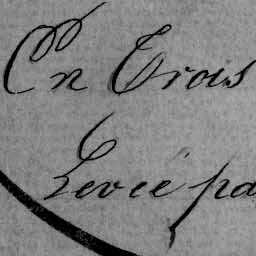 En Trois
Levée pa